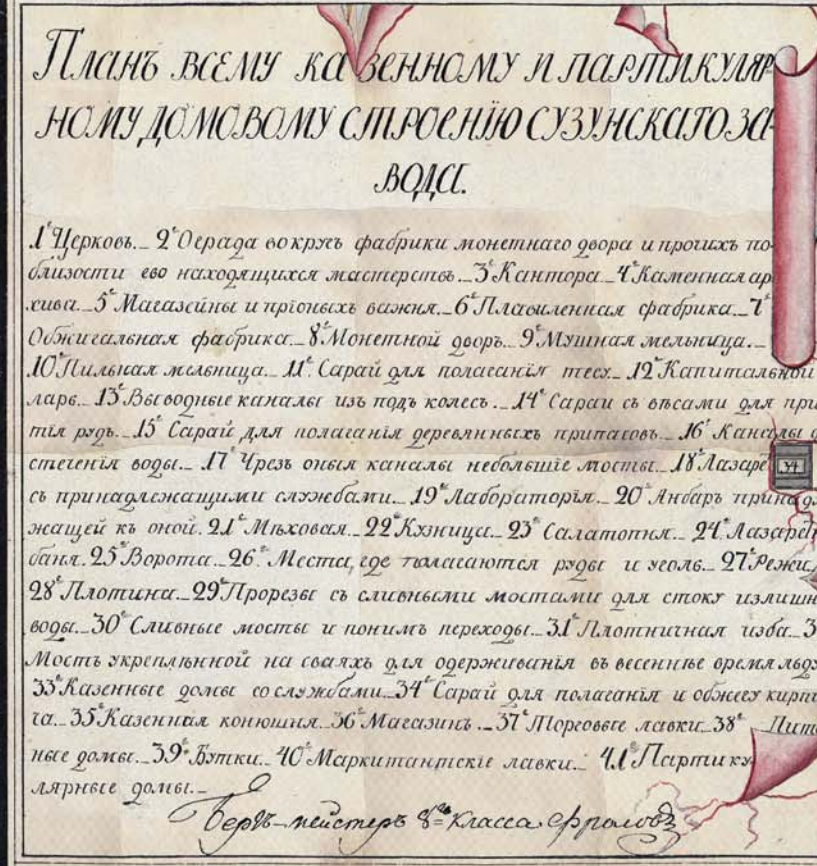 Планъ всему казенному и партикуляр
ному домовому строенію Сузунскаго за
вода.
1е Церковь. 2е Ограда вокругъ фабрики монетнаго двора и прочихъ по
близости ево находящихся мастерствъ. 3е Кантора. 4е Каменная ар
хива. 5е Магазейны и пріоныхъ важня. 6е Плавиленная фабрика. 7е
Обжигальная фабрика. 8е Монетной дворъ. 9е Мушная мельница.
10е Пильная мельница. 11е Сарай для полаганія тесу. 12е Капитальной
ларь. 13е Выводные каналы изъ подъ колесъ. 14е Сараи съ вѣсами для при
тія рудъ. 15е Сарай для полаганія деревянныхъ припасовъ. 16е Каналы д
стеченія воды. 17е Чрезъ оныя каналы небольшіе мосты. 18е Лазарет
съ принадлежащими службами. 19е Лабораторія. 20е Анбаръ принадл
жащей къ оной. 21е Мѣховая. 22е Кузница. 23е Салатопня. 24е Лазарет
баня. 25е Ворота. 26е Места, где полагаются руды и уголь. 27е Режи.
28е Плотина. 29е Прорезы съ сливными мостами для стоку излишн
воды. 30е Сливные мосты и понимъ переходы. 31е Плотничная изба. 3
Мостъ укрепленной на сваяхъ для одерживанія въ весенніе время льду
33е Казенные домы со службами. 34е Сарай для полаганія и обжегу кирпи
ча. 35е Казенная конюшня. 36е Магазинъ. 37е Торговые лавки. 38е Пите
ные домы. 39е Бутки. 40е Маркитантскіе лавки. 41е Партику
лярные домы.
Бергъ-мейстеръ 8го класса Фроловъ
34